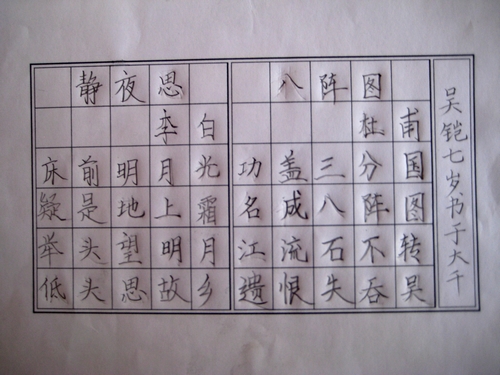 静夜思
李白
床前明月光
疑是地上霜
举头望明月
低头思故乡
八阵图
杜甫
功盖三分国
名成八阵图
江流石不转
遗恨失吞吴
吴铠七岁书于大千